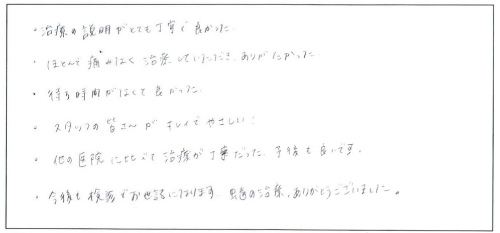 ・治療の説明がとても丁寧で良かった。
・ほとんど痛みなく治療していただき、ありがたかった
・待ち時間がなくて良かった。
・スタッフの皆さんがキレイでやさしい!
・他の医院に比べて治療が丁寧だった。予後も良いです。
・今後も検診でお世話になります。の治療、ありがとうございました。